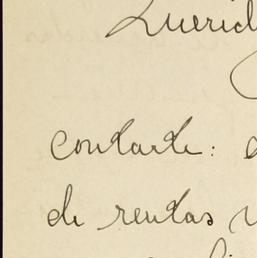 Querid
contarte:
de rentas